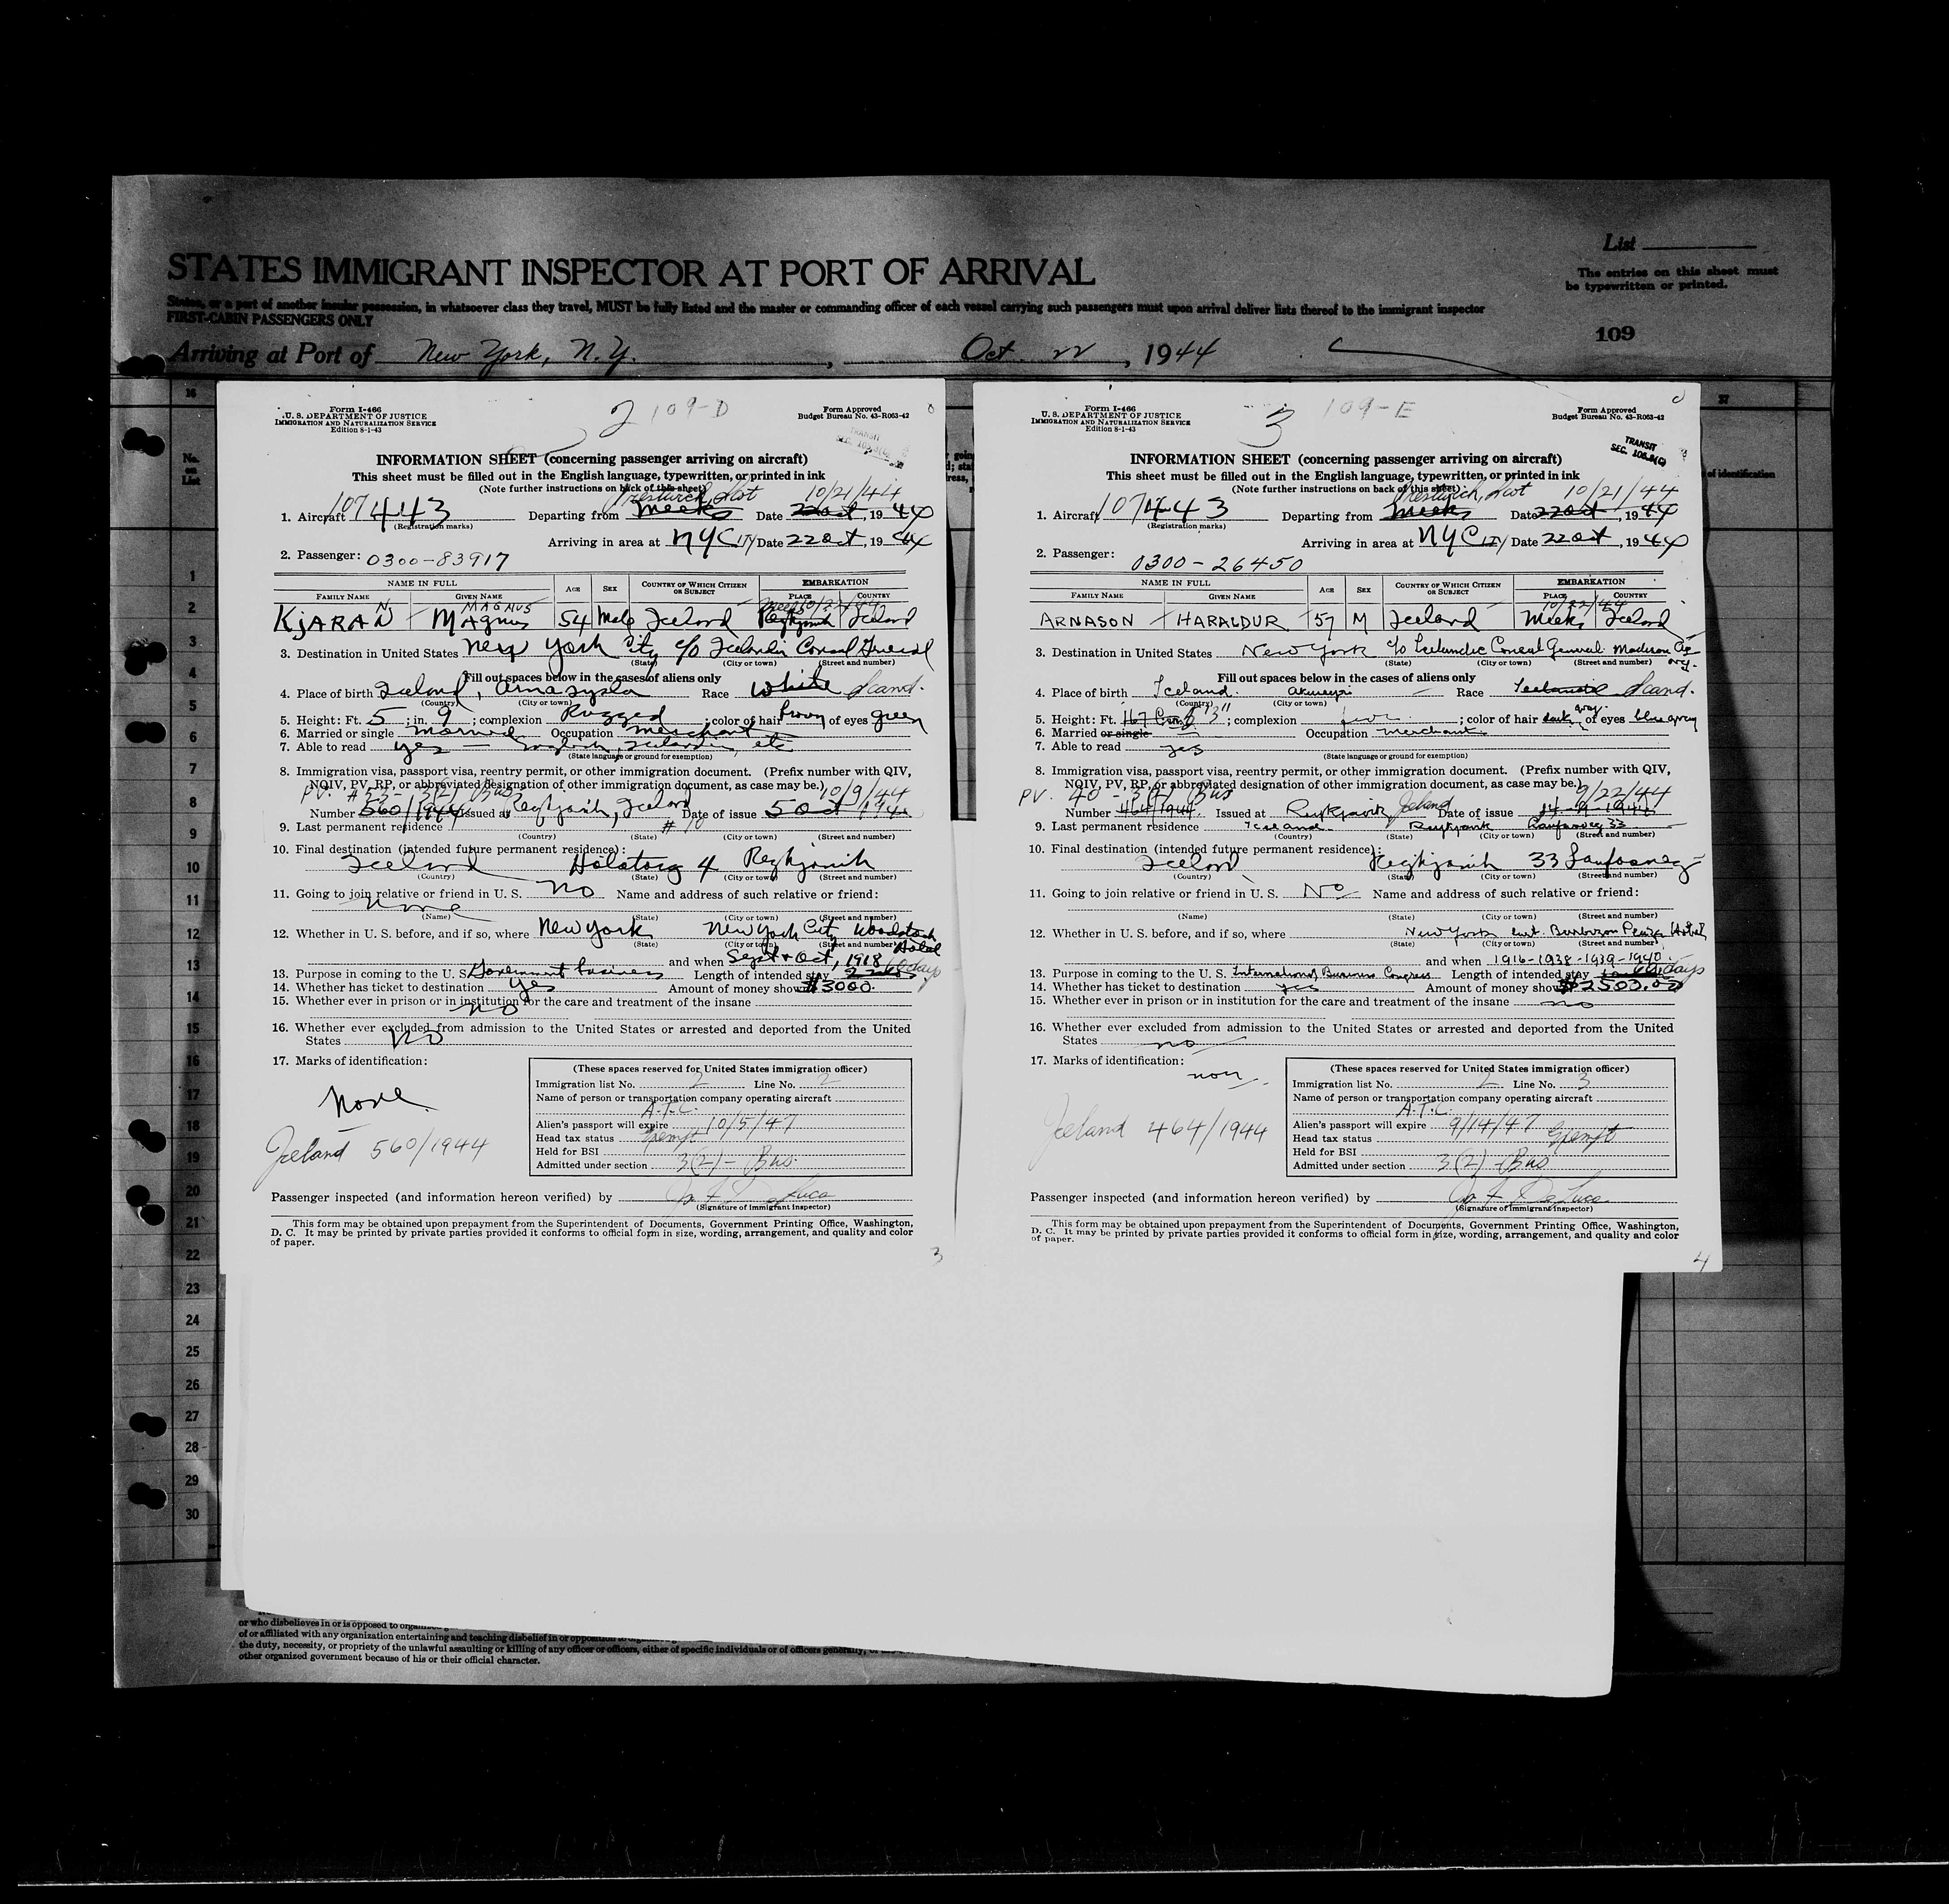 STATES IMMIGRANT INSPECTOR AT PORT OF ARRIVAL
List
The entries on this sheet must
be typewritten or printed.
States, or a port of another insular possession, in whatsoever class they travel, MUST be fully listed and the master or commanding officer of each vessel carrying such passengers must upon arrival deliver lists thereof to the immigrant inspector
FIRST-CABIN PASSENGERS ONLY
109
Arriving at Port of New York, N.Y., Oct. 22, 1944
16
37
No.
on
List
of identification
1
2
3
4
5
6
7
8
9
10
11
12
13
14
15
16
17
18
19
20
21
22
23
24
25
26
27
28
29
30
Form I-466
U. S. DEPARTMENT OF JUSTICE
IMMIGRATION AND NATURALIZATION SERVICE
Edition 8-1-43
2 109-D
Form Approved
Budget Bureau No. 43-R063-42
TRANSIT
INFORMATION SHEET (concerning passenger arriving on aircraft)
This sheet must be filled out in the English language, typewritten, or printed in ink
(Note further instructions on back of this sheet)
Prestwick, Scot 10/21/44
1. Aircraft 107443 Departing from Meeks Date 22 Oct, 1944
(Registration marks)
Arriving in area at NYCITY Date 22 Oct, 1944
2. Passenger: 0300-83917
NAME IN FULL AGE SEX COUNTRY OF WHICH CITIZEN OR SUBJECT EMBARKATION
FAMILY NAME GIVEN NAME PLACE COUNTRY
MAGNUS Meeks 10/22/44
KJARAN Magnus 54 Male Iceland Reykjavik Iceland
3. Destination in United States New York City c/o Icelandic Consul General
(State) (City or town) (Street and number)
Fill out spaces below in the cases of aliens only
4. Place of birth Iceland, Arnassysla Race White Scand.
(Country) (City or town)
5. Height: Ft. 5; in. 9; complexion Rugged; color of hair brown of eyes green
6. Married or single married Occupation merchant
7. Able to read yes — English, Icelandic, etc
(State language or ground for exemption)
8. Immigration visa, passport visa, reentry permit, or other immigration document. (Prefix number with QIV,
NQIV, PV, RP, or abbreviated designation of other immigration document, as case may be.)
PV. 3(2) Bus 10/9/44
Number 560/1944 Issued at Reykjavik, Iceland Date of issue 5 Oct 1944
9. Last permanent residence
(Country) (State) (City or town) (Street and number)
10. Final destination (intended future permanent residence):
Iceland Holatorg 4 Reykjavik
(Country) (State) (City or town) (Street and number)
11. Going to join relative or friend in U. S. No Name and address of such relative or friend:
None
(Name) (State) (City or town) (Street and number)
12. Whether in U. S. before, and if so, where New York New York City Woodstock Hotel
(State) (City or town) (Street and number)
and when Sept & Oct, 1918
13. Purpose in coming to the U. S. Government business Length of intended stay 60 days
14. Whether has ticket to destination yes Amount of money shown $3000.
15. Whether ever in prison or in institution for the care and treatment of the insane
no
16. Whether ever excluded from admission to the United States or arrested and deported from the United
States no
17. Marks of identification:
None.
Iceland 560/1944
(These spaces reserved for United States immigration officer)
Immigration list No. 2 Line No. 2
Name of person or transportation company operating aircraft
A.T.C.
Alien's passport will expire 10/5/47
Head tax status Exempt
Held for BSI
Admitted under section 3(2) - Bus.
Passenger inspected (and information hereon verified) by
(Signature of Immigrant Inspector)
This form may be obtained upon prepayment from the Superintendent of Documents, Government Printing Office, Washington,
D. C. It may be printed by private parties provided it conforms to official form in size, wording, arrangement, and quality and color
of paper.
3
Form I-466
U. S. DEPARTMENT OF JUSTICE
IMMIGRATION AND NATURALIZATION SERVICE
Edition 8-1-43
3 109-E
Form Approved
Budget Bureau No. 43-R063-42
TRANSIT
SEC. 108.3(C)
INFORMATION SHEET (concerning passenger arriving on aircraft)
This sheet must be filled out in the English language, typewritten, or printed in ink
(Note further instructions on back of this sheet)
Prestwick, Scot 10/21/44
1. Aircraft 107443 Departing from Meeks Date 22 Oct, 1944
(Registration marks)
Arriving in area at NYCITY Date 22 Oct, 1944
2. Passenger: 0300-26450
NAME IN FULL AGE SEX COUNTRY OF WHICH CITIZEN OR SUBJECT EMBARKATION
FAMILY NAME GIVEN NAME PLACE COUNTRY
10/22/44
ARNASON HARALDUR 57 M Iceland Meeks Iceland
3. Destination in United States New York c/o Icelandic Consul General Madison
(State) (City or town) (Street and number)
Fill out spaces below in the cases of aliens only
4. Place of birth Iceland. Akureyri Race Icelandic Scand.
(Country) (City or town)
5. Height: Ft. 167 Cm; complexion; color of hair dark gray of eyes blue gray
6. Married or single Occupation merchant
7. Able to read yes
(State language or ground for exemption)
8. Immigration visa, passport visa, reentry permit, or other immigration document. (Prefix number with QIV,
NQIV, PV, RP, or abbreviated designation of other immigration document, as case may be.)
PV. 40 - 3(2) Bus 9/22/44
Number 464/1944. Issued at Reykjavik Iceland Date of issue 14-9-1944
9. Last permanent residence Iceland Reykjavik Laufasveg 33
(Country) (State) (City or town) (Street and number)
10. Final destination (intended future permanent residence):
Iceland Reykjavik 33 Laufasveg
(Country) (State) (City or town) (Street and number)
11. Going to join relative or friend in U. S. No Name and address of such relative or friend:
(Name) (State) (City or town) (Street and number)
12. Whether in U. S. before, and if so, where New York Barbizon Plaza Hotel
(State) (City or town) (Street and number)
and when 1916-1938-1939-1940.
13. Purpose in coming to the U. S. International Business Congress Length of intended stay 60 days
14. Whether has ticket to destination yes Amount of money shown $2503.00
15. Whether ever in prison or in institution for the care and treatment of the insane
no
16. Whether ever excluded from admission to the United States or arrested and deported from the United
States no
17. Marks of identification:
non
Iceland 464/1944
(These spaces reserved for United States immigration officer)
Immigration list No. 2 Line No. 3
Name of person or transportation company operating aircraft
A.T.C.
Alien's passport will expire 9/14/47
Head tax status Exempt
Held for BSI
Admitted under section 3(2) - Bus
Passenger inspected (and information hereon verified) by
(Signature of Immigrant Inspector)
This form may be obtained upon prepayment from the Superintendent of Documents, Government Printing Office, Washington,
D. C. It may be printed by private parties provided it conforms to official form in size, wording, arrangement, and quality and color
of paper.
4
or who disbelieves in or is opposed to
of or affiliated with any organization entertaining and teaching disbelief in or opposition to
the duty, necessity, or propriety of the unlawful assaulting or killing of any officer or officers, either of specific individuals or of officers generally,
other organized government because of his or their official character.